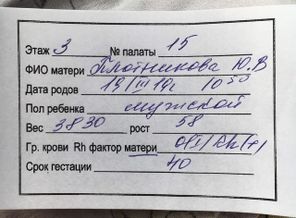 Этаж 3 № палаты 15
ФИО матери Плотникова Ю.В
Дата родов 19/III 14г 10 50
Пол ребенка мужской
Вес 3830 рост 58
Гр. крови Rh фактор матери 0(I) Rh(+)
Срок гестации 40